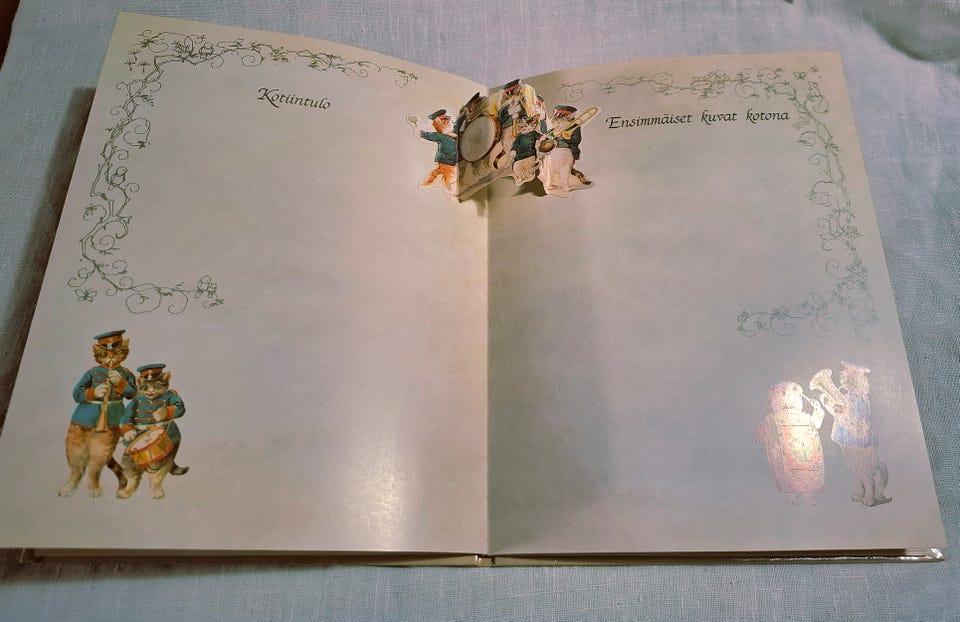 Kotiintulo
Ensimmäiset kuvat kotona